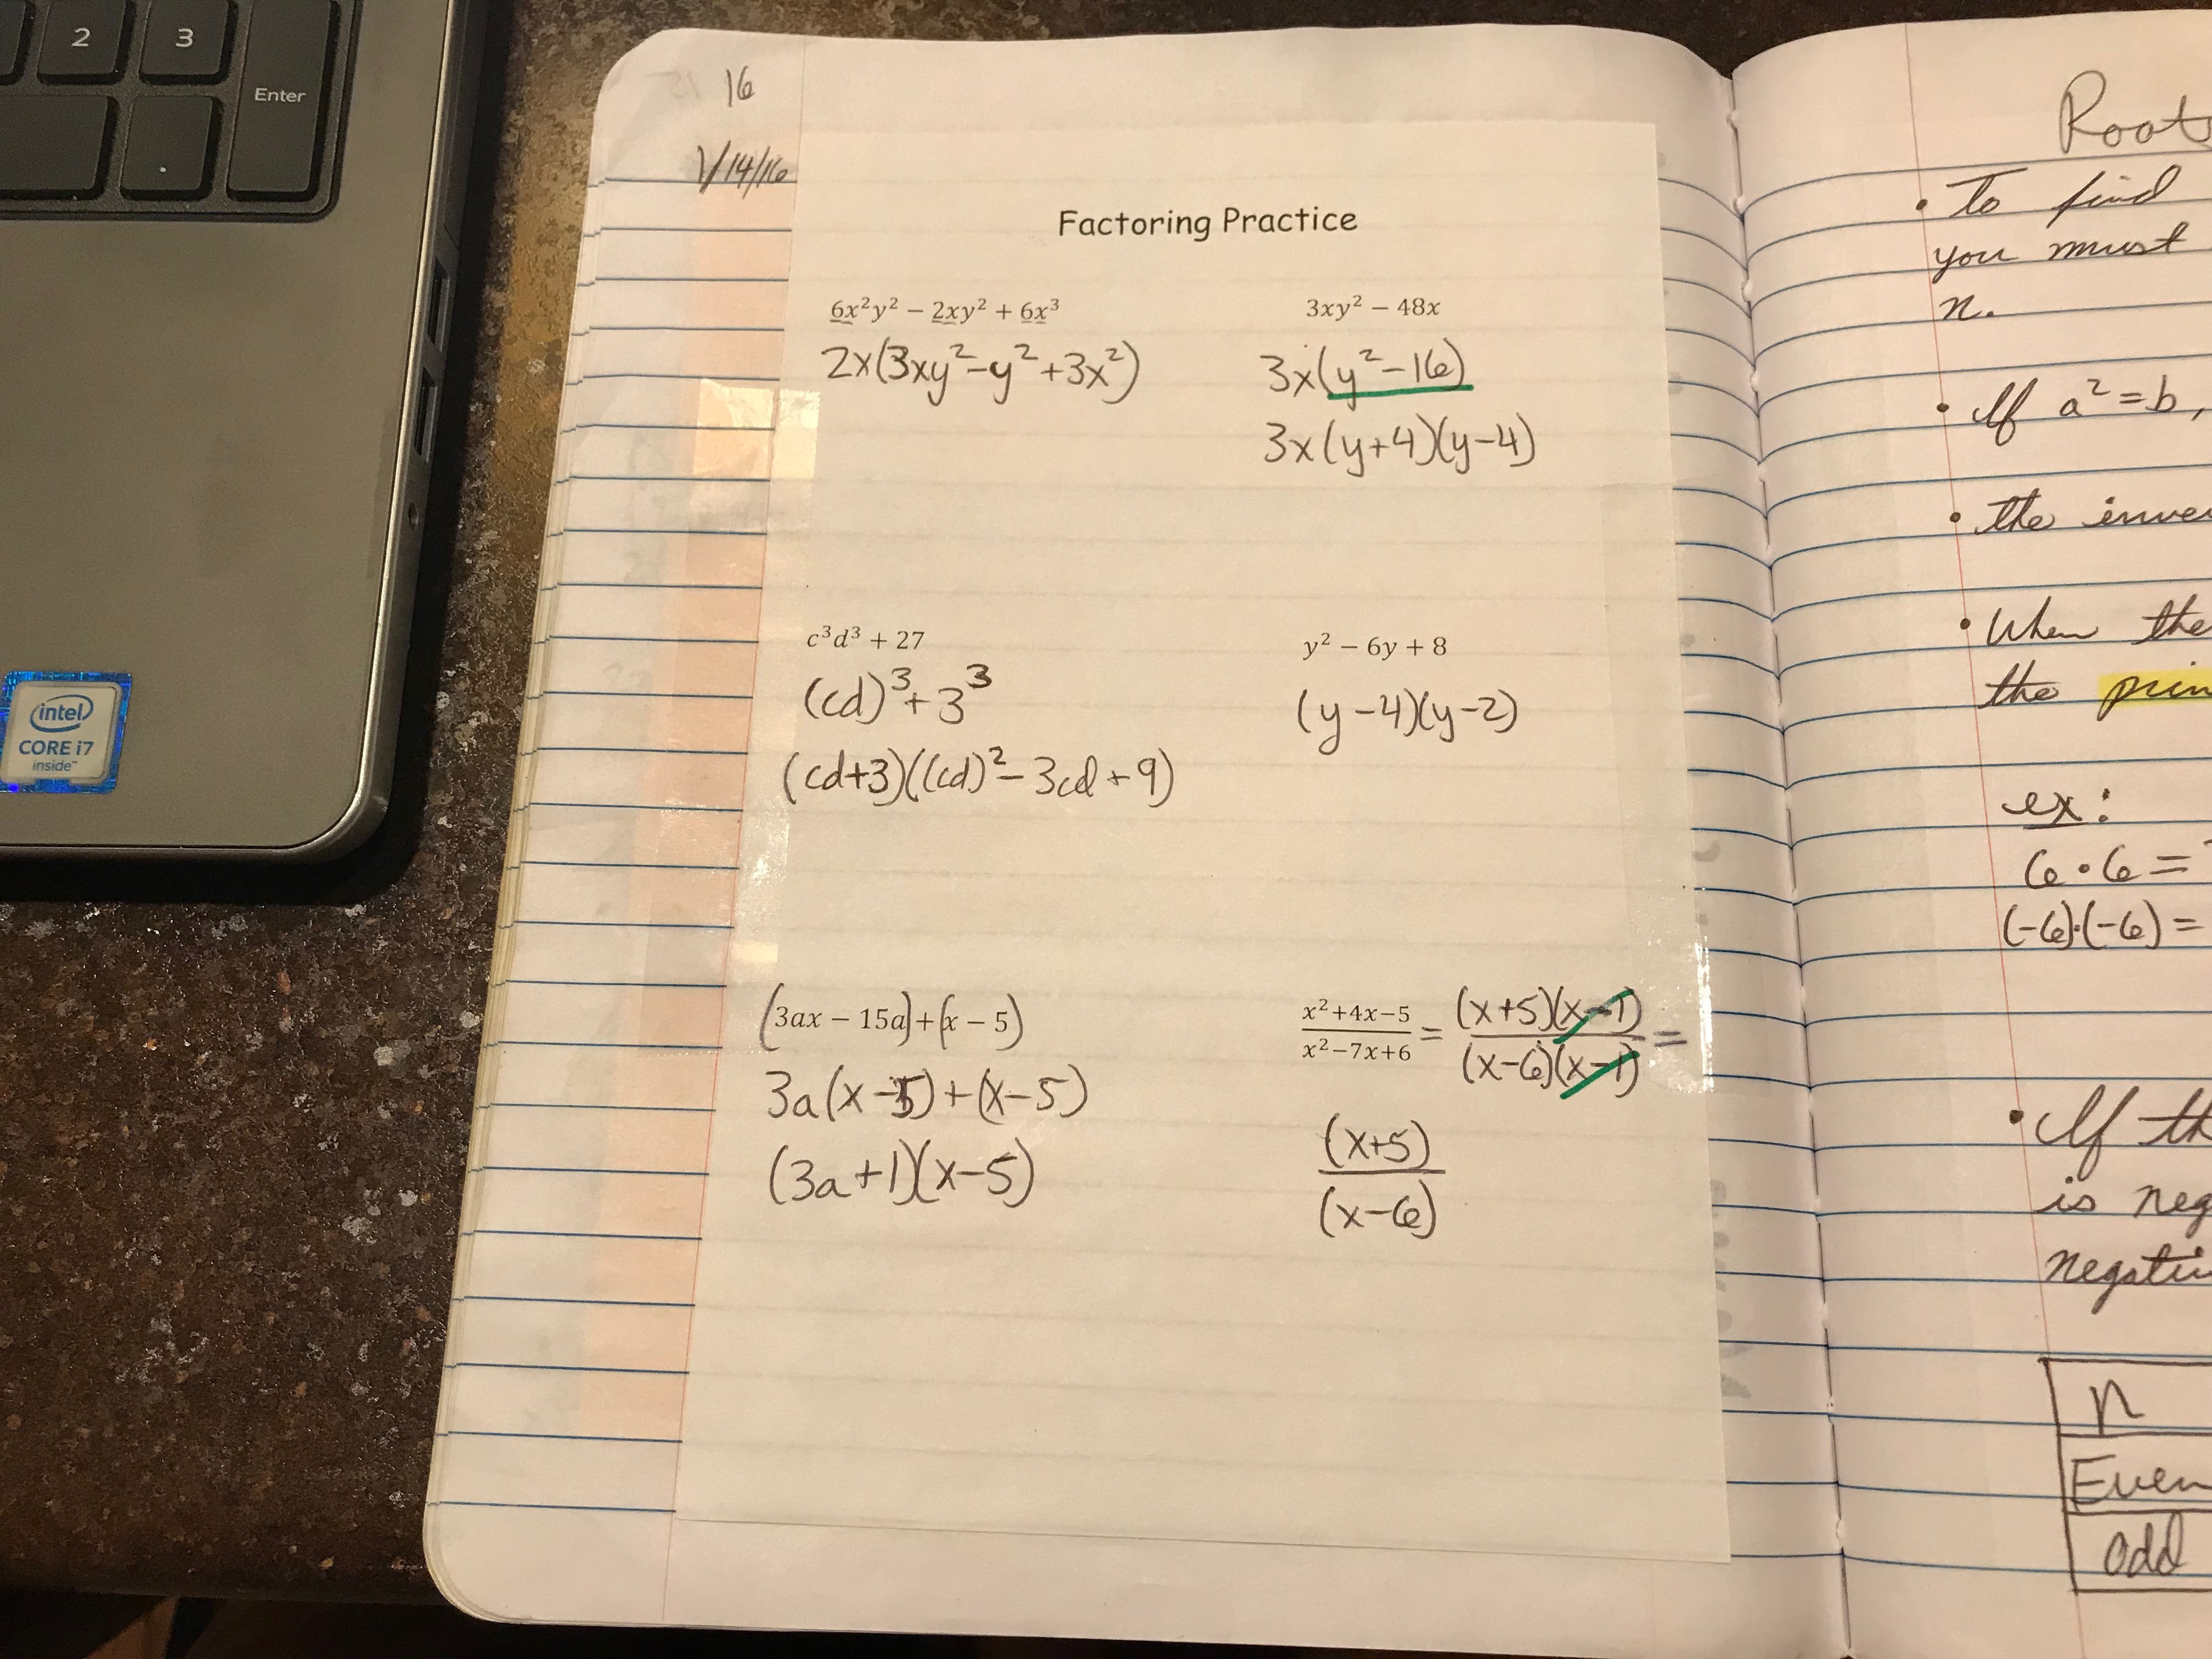 intel
CORE i7
inside™
2
3
.
Enter
16
1/14/16
Factoring Practice
6x²y² − 2xy² + 6x³
2x(3xy² − y² + 3x²)
3xy² − 48x
3x(y² − 16)
3x(y+4)(y−4)
c³d³ + 27
(cd)³ + 3³
(cd+3)((cd)² − 3cd + 9)
y² − 6y + 8
(y − 4)(y − 2)
(3ax − 15a) + (x − 5)
3a(x − 5) + (x − 5)
(3a + 1)(x − 5)
x²+4x−5 / x²−7x+6 = (x+5)(x−1) / (x−6)(x−1) =
(x+5) / (x−6)
Root
• To find
you must
n.
• If a² = b,
• the inver
• When the
the prin
ex:
6 · 6 =
(-6)·(-6) =
• If th
is neg
negativ
n
Even
odd